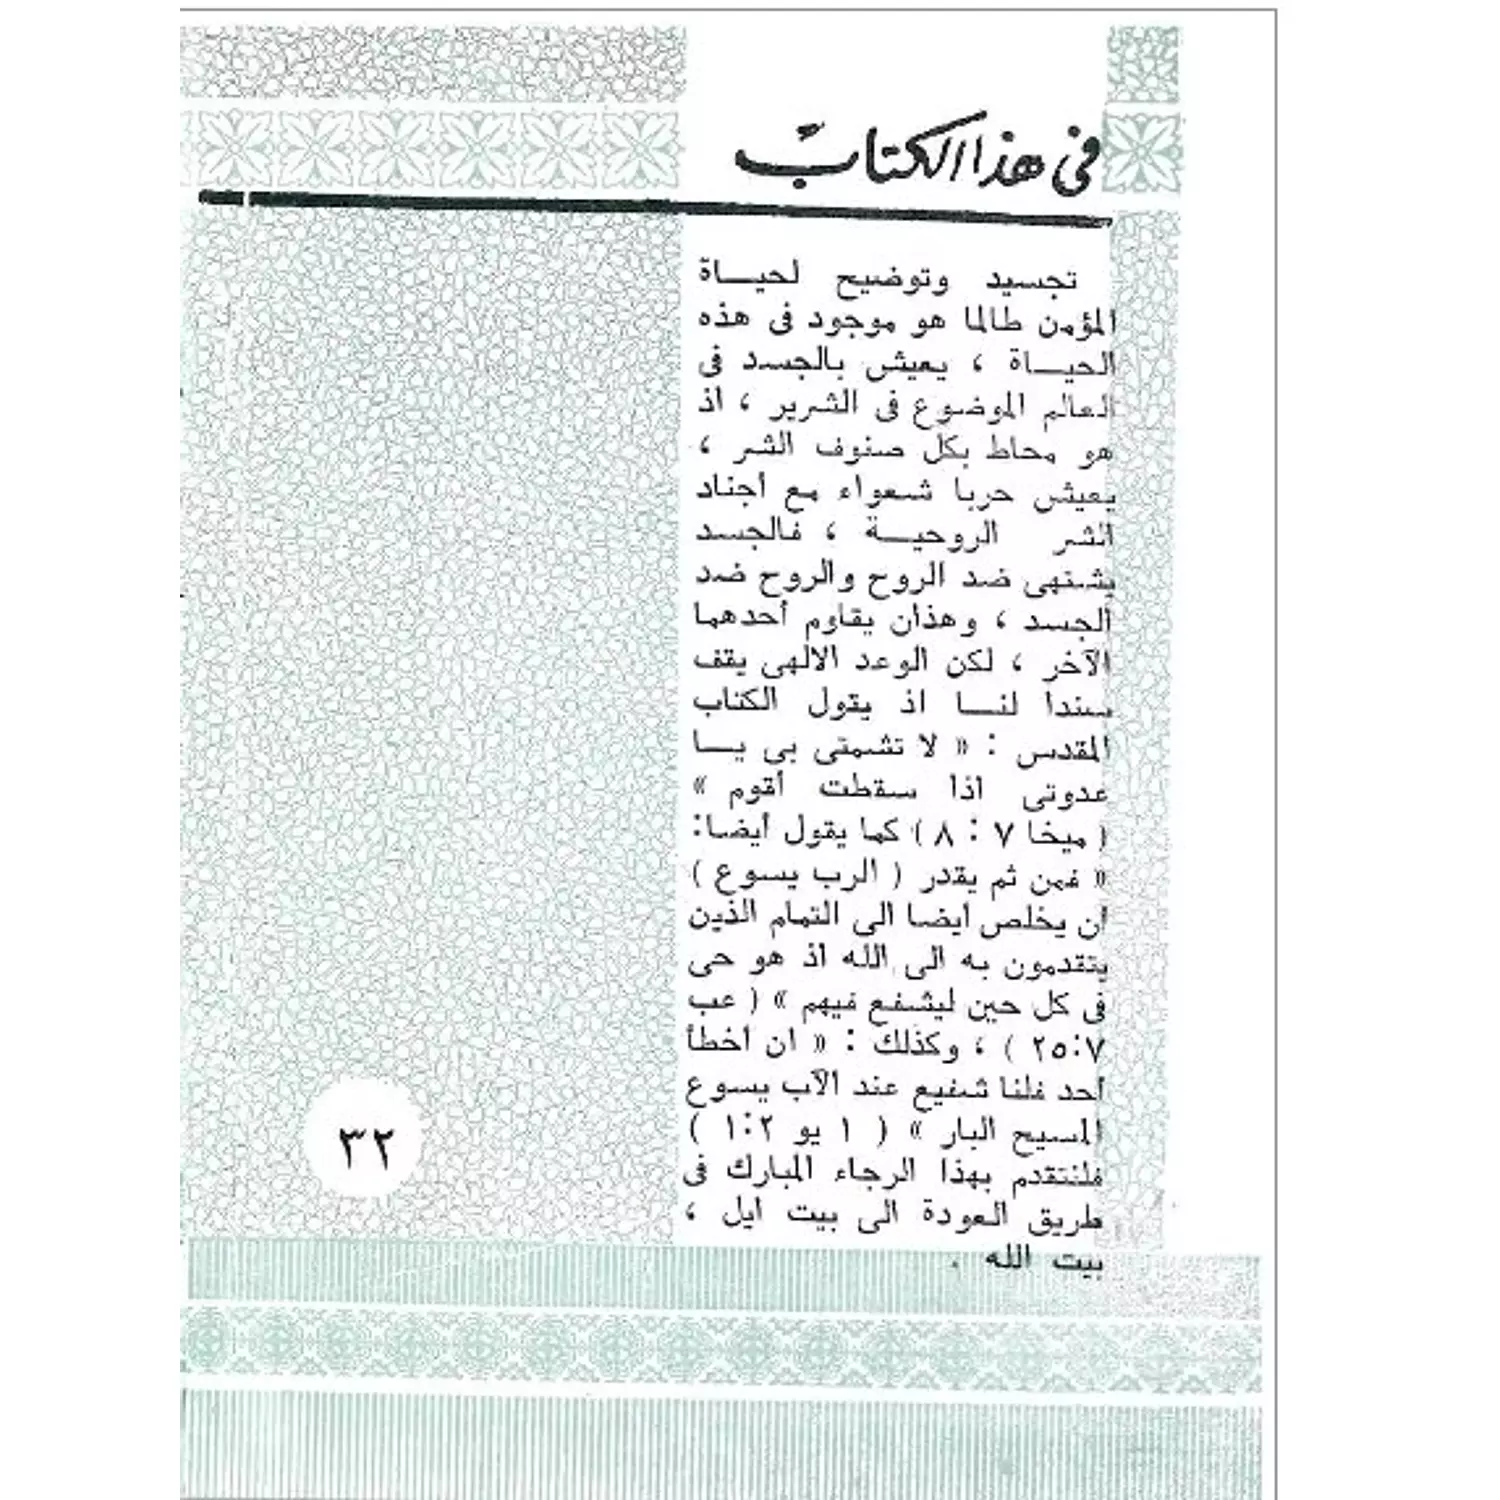 فى هذا الكتاب
تجسيد وتوضيح لحيـــاة
المؤمن طالما هو موجود فى هذه
الحيـــاة ، يعيش بالجسد فى
العالم الموضوع فى الشرير ، اذ
هو محاط بكل صنوف الشر ،
يعيش حربا شعواء مع أجناد
الشر الروحيـــة ، فالجسد
يشتهى ضد الروح والروح ضد
الجسد ، وهذان يقاوم أحدهما
الآخر ، لكن الوعد الالهى يقف
سندا لنـــا اذ يقول الكتاب
المقدس : « لا تشمتى بى يـــا
عدوتى اذا سقطت أقوم »
( ميخا ٧ : ٨ ) كما يقول أيضا:
« فمن ثم يقدر ( الرب يسوع )
أن يخلص أيضا الى التمام الذين
يتقدمون به الى الله اذ هو حى
فى كل حين ليشفع فيهم » ( عب
٢٥:٧ ) ، وكذلك : « ان أخطأ
أحد فلنا شفيع عند الآب يسوع
المسيح البار » ( ١ يو ١:٢ )
فلنتقدم بهذا الرجاء المبارك فى
طريق العودة الى بيت ايل ،
بيت الله .
٣٢